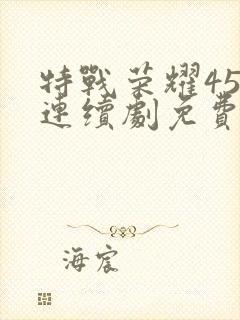 特戰荣耀45
連續劇免費
海宸